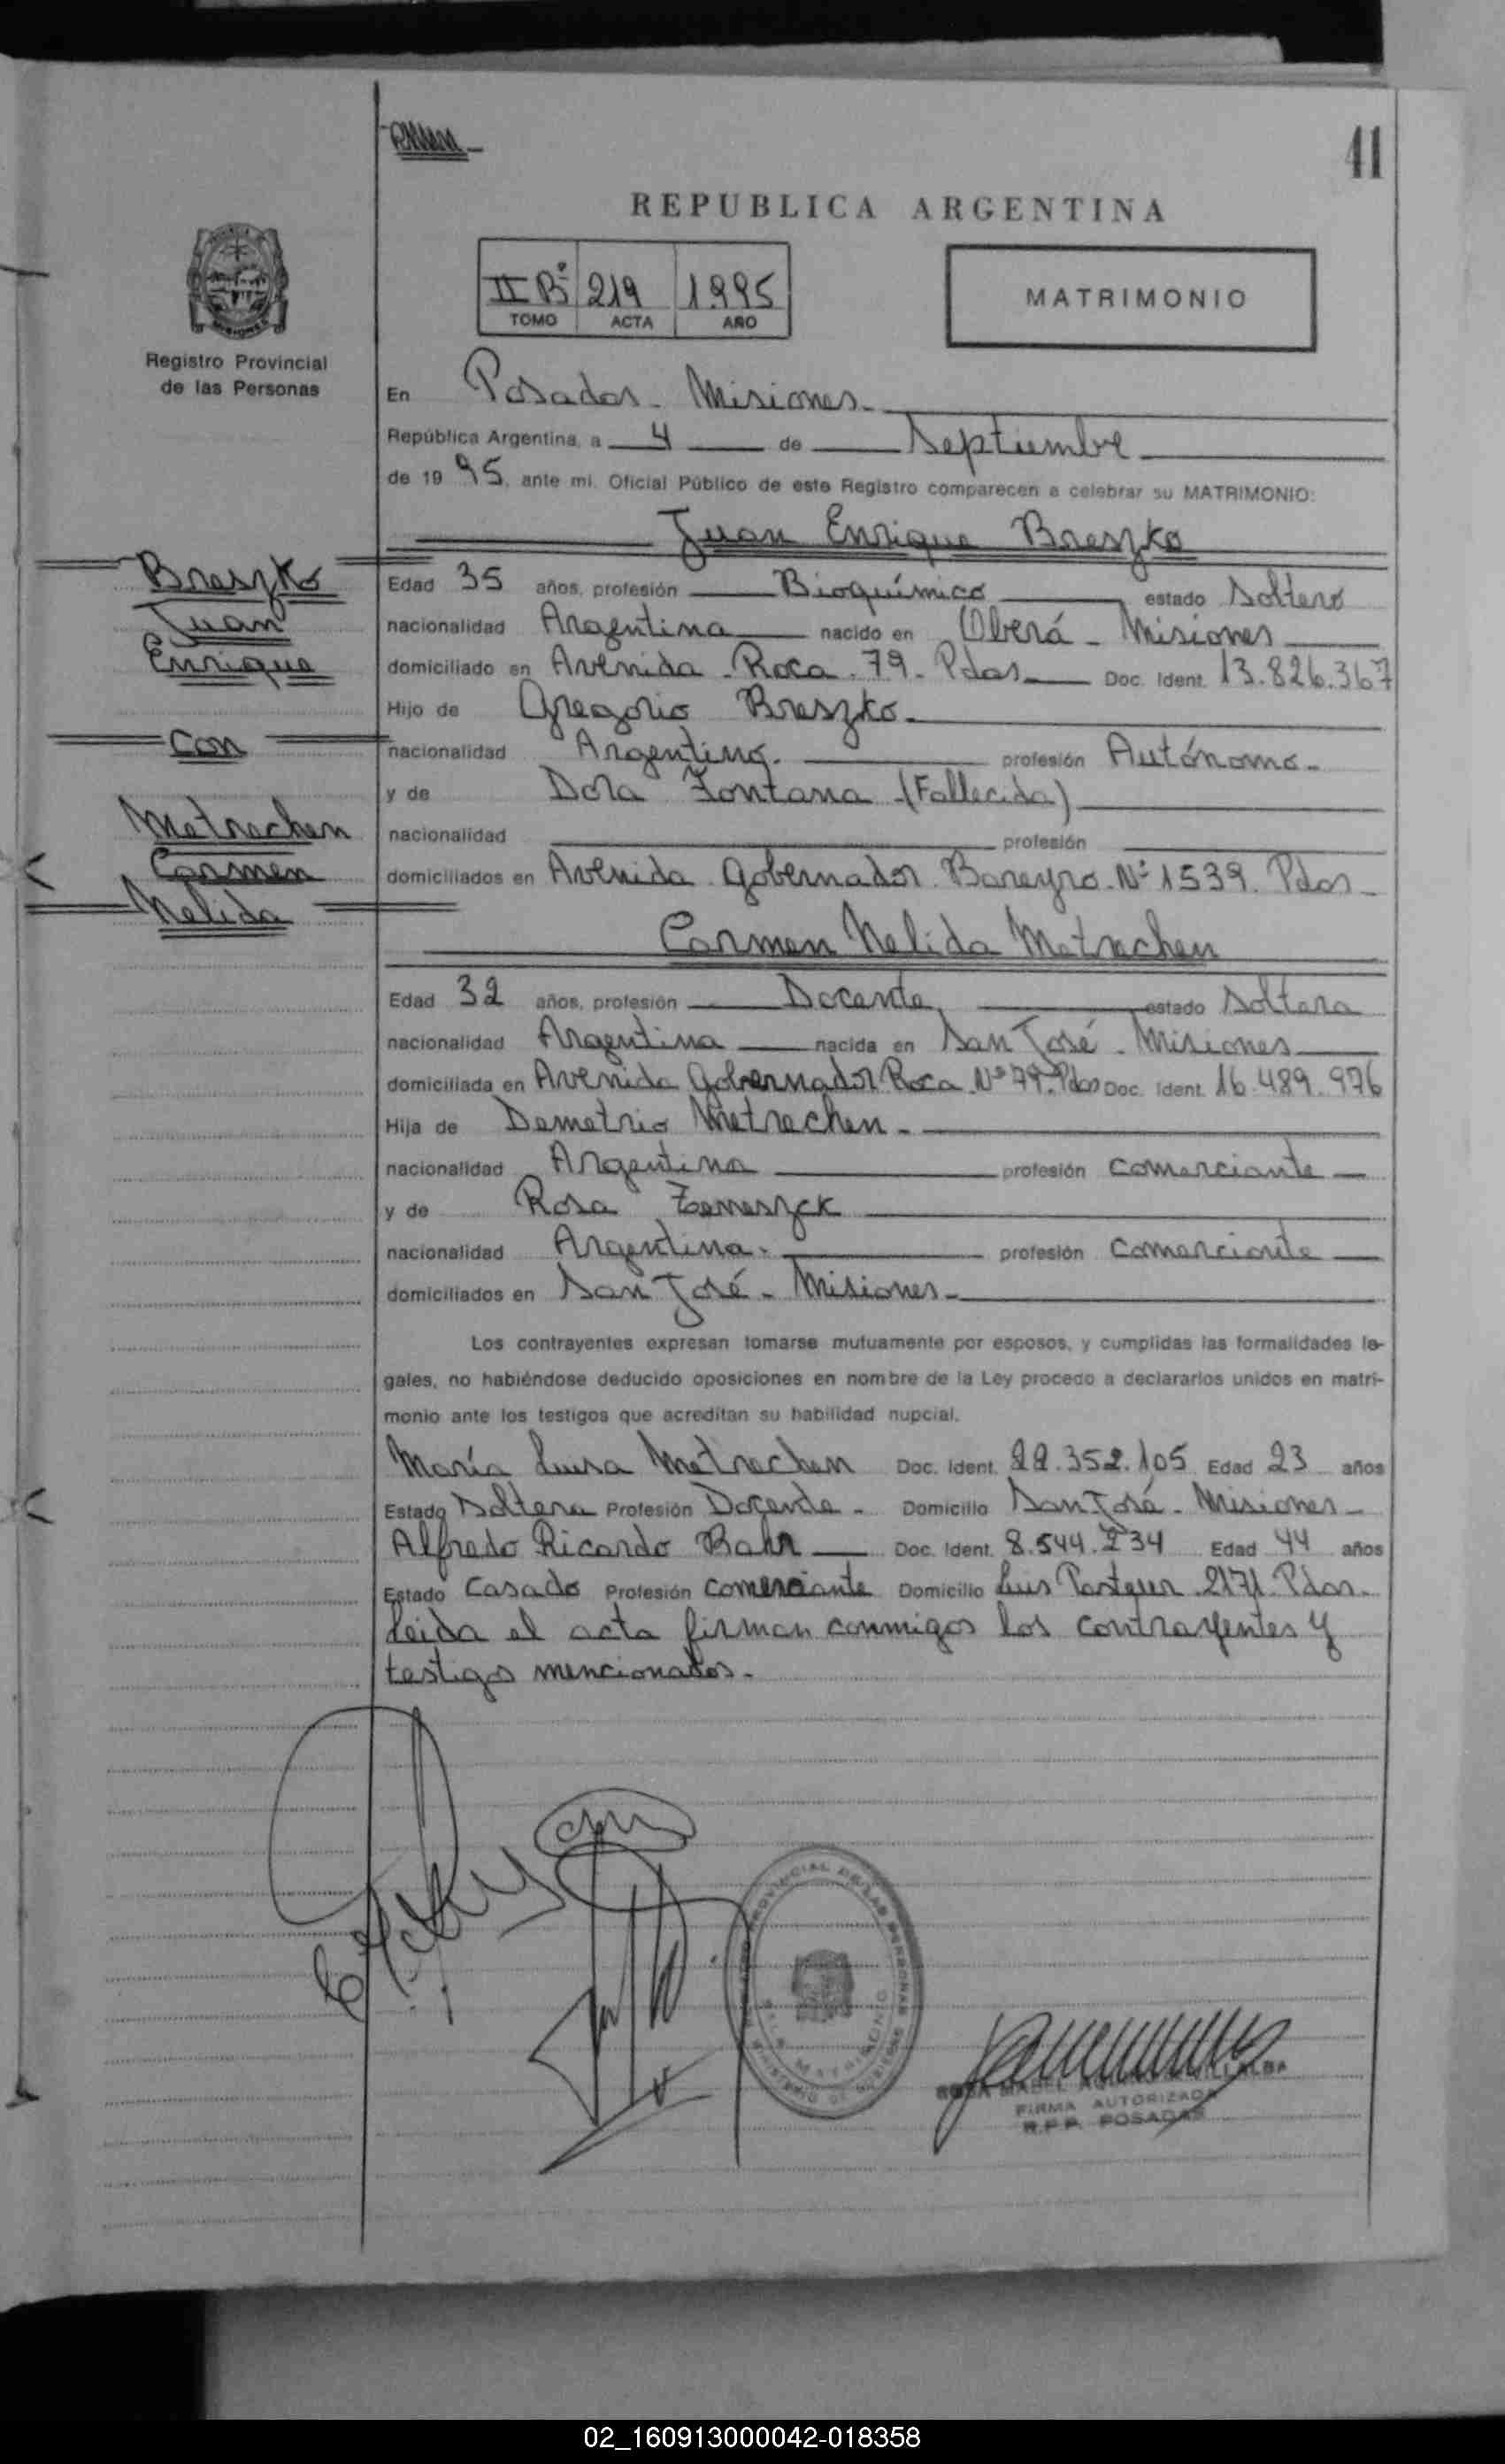 41
REPUBLICA ARGENTINA
II Bº 219 1995
TOMO ACTA AÑO
MATRIMONIO
Registro Provincial
de las Personas
En Posadas - Misiones -
República Argentina, a 4 de Septiembre
de 1995, ante mi, Oficial Público de este Registro comparecen a celebrar su MATRIMONIO:
Juan Enrique Breszko
Breszko
Juan
Enrique
Con
Metrechen
Carmen
Nelida
Edad 35 años, profesión Bioquímico estado Soltero
nacionalidad Argentina nacido en Oberá - Misiones
domiciliado en Avenida - Roca - 79 - Pdas Doc. Ident. 13.826.367
Hijo de Gregorio Breszko -
nacionalidad Argentina - profesión Autónomo -
y de Dora Fontana (Fallecida)
nacionalidad profesión
domiciliados en Avenida Gobernador Bareyro Nº 1539 Pdas -
Carmen Nelida Metrechen
Edad 32 años, profesión Docente estado Soltera
nacionalidad Argentina nacida en San José - Misiones
domiciliada en Avenida Gobernador Roca Nº 79 Pdas Doc. Ident. 16.489.976
Hija de Demetrio Metrechen -
nacionalidad Argentina profesión comerciante
y de Rosa
nacionalidad Argentina - profesión comerciante
domiciliados en San José - Misiones -
Los contrayentes expresan tomarse mutuamente por esposos, y cumplidas las formalidades le-
gales, no habiéndose deducido oposiciones en nombre de la Ley procedo a declararlos unidos en matri-
monio ante los testigos que acreditan su habilidad nupcial.
María Luisa Metrechen Doc. Ident. 22.352.105 Edad 23 años
Estado Soltera Profesión Docente - Domicilio San José - Misiones -
Alfredo Ricardo Bahr Doc. Ident. 8.544.234 Edad 44 años
Estado Casado Profesión comerciante Domicilio Luis Pasteur 2171 Pdas -
Leida el acta firman conmigos los contrayentes y
testigos mencionados -
FIRMA AUTORIZADA
R.P.P. POSADAS
02_160913000042-018358